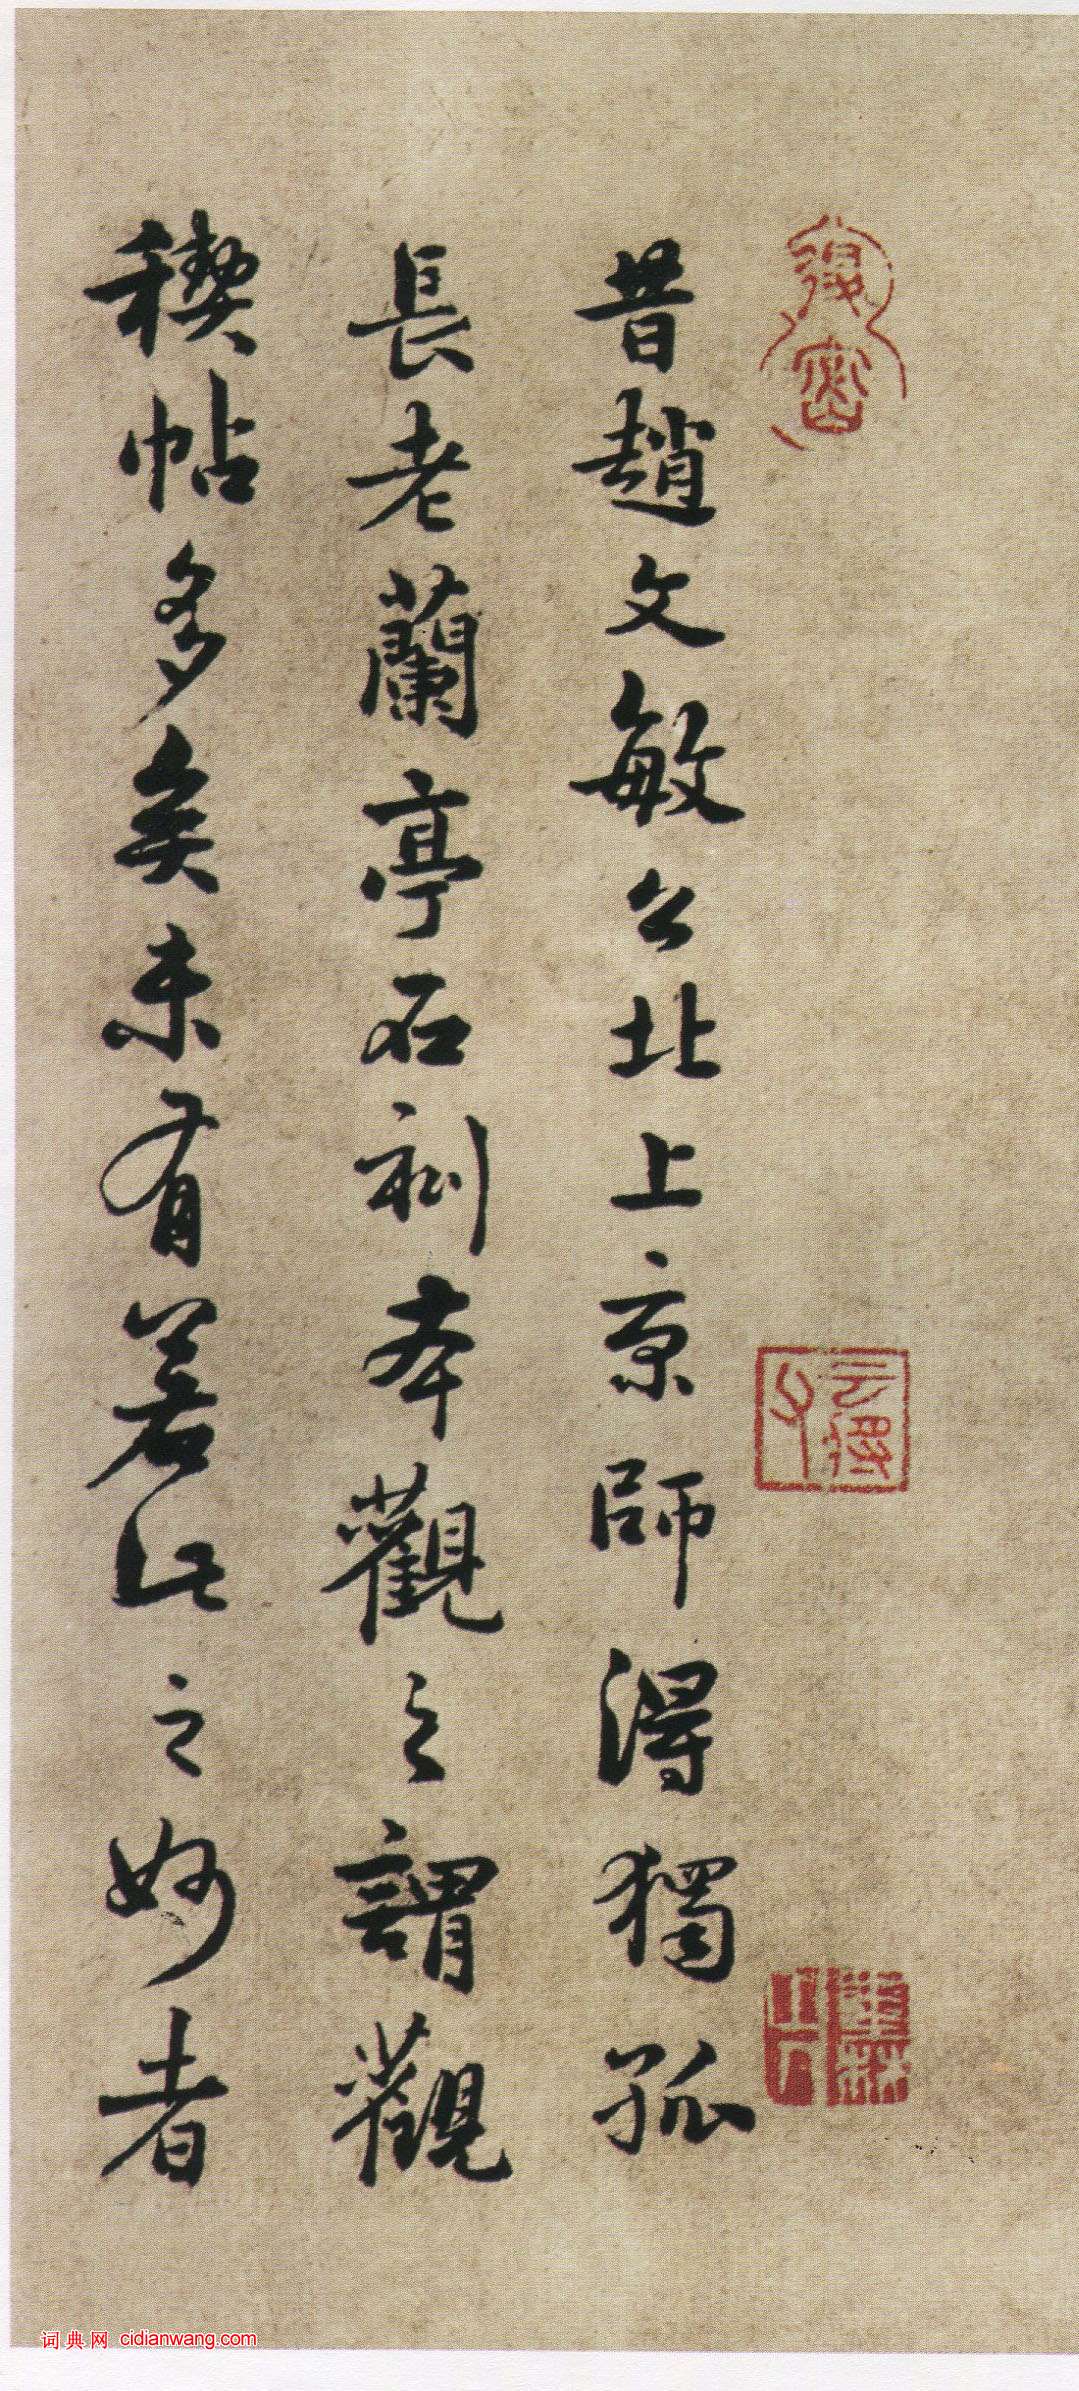 昔趙文敏公北上京師得獨孤
長老蘭亭石刻本觀之謂觀
禊帖多矣未有若此之妙者
词典网 cidianwang.com